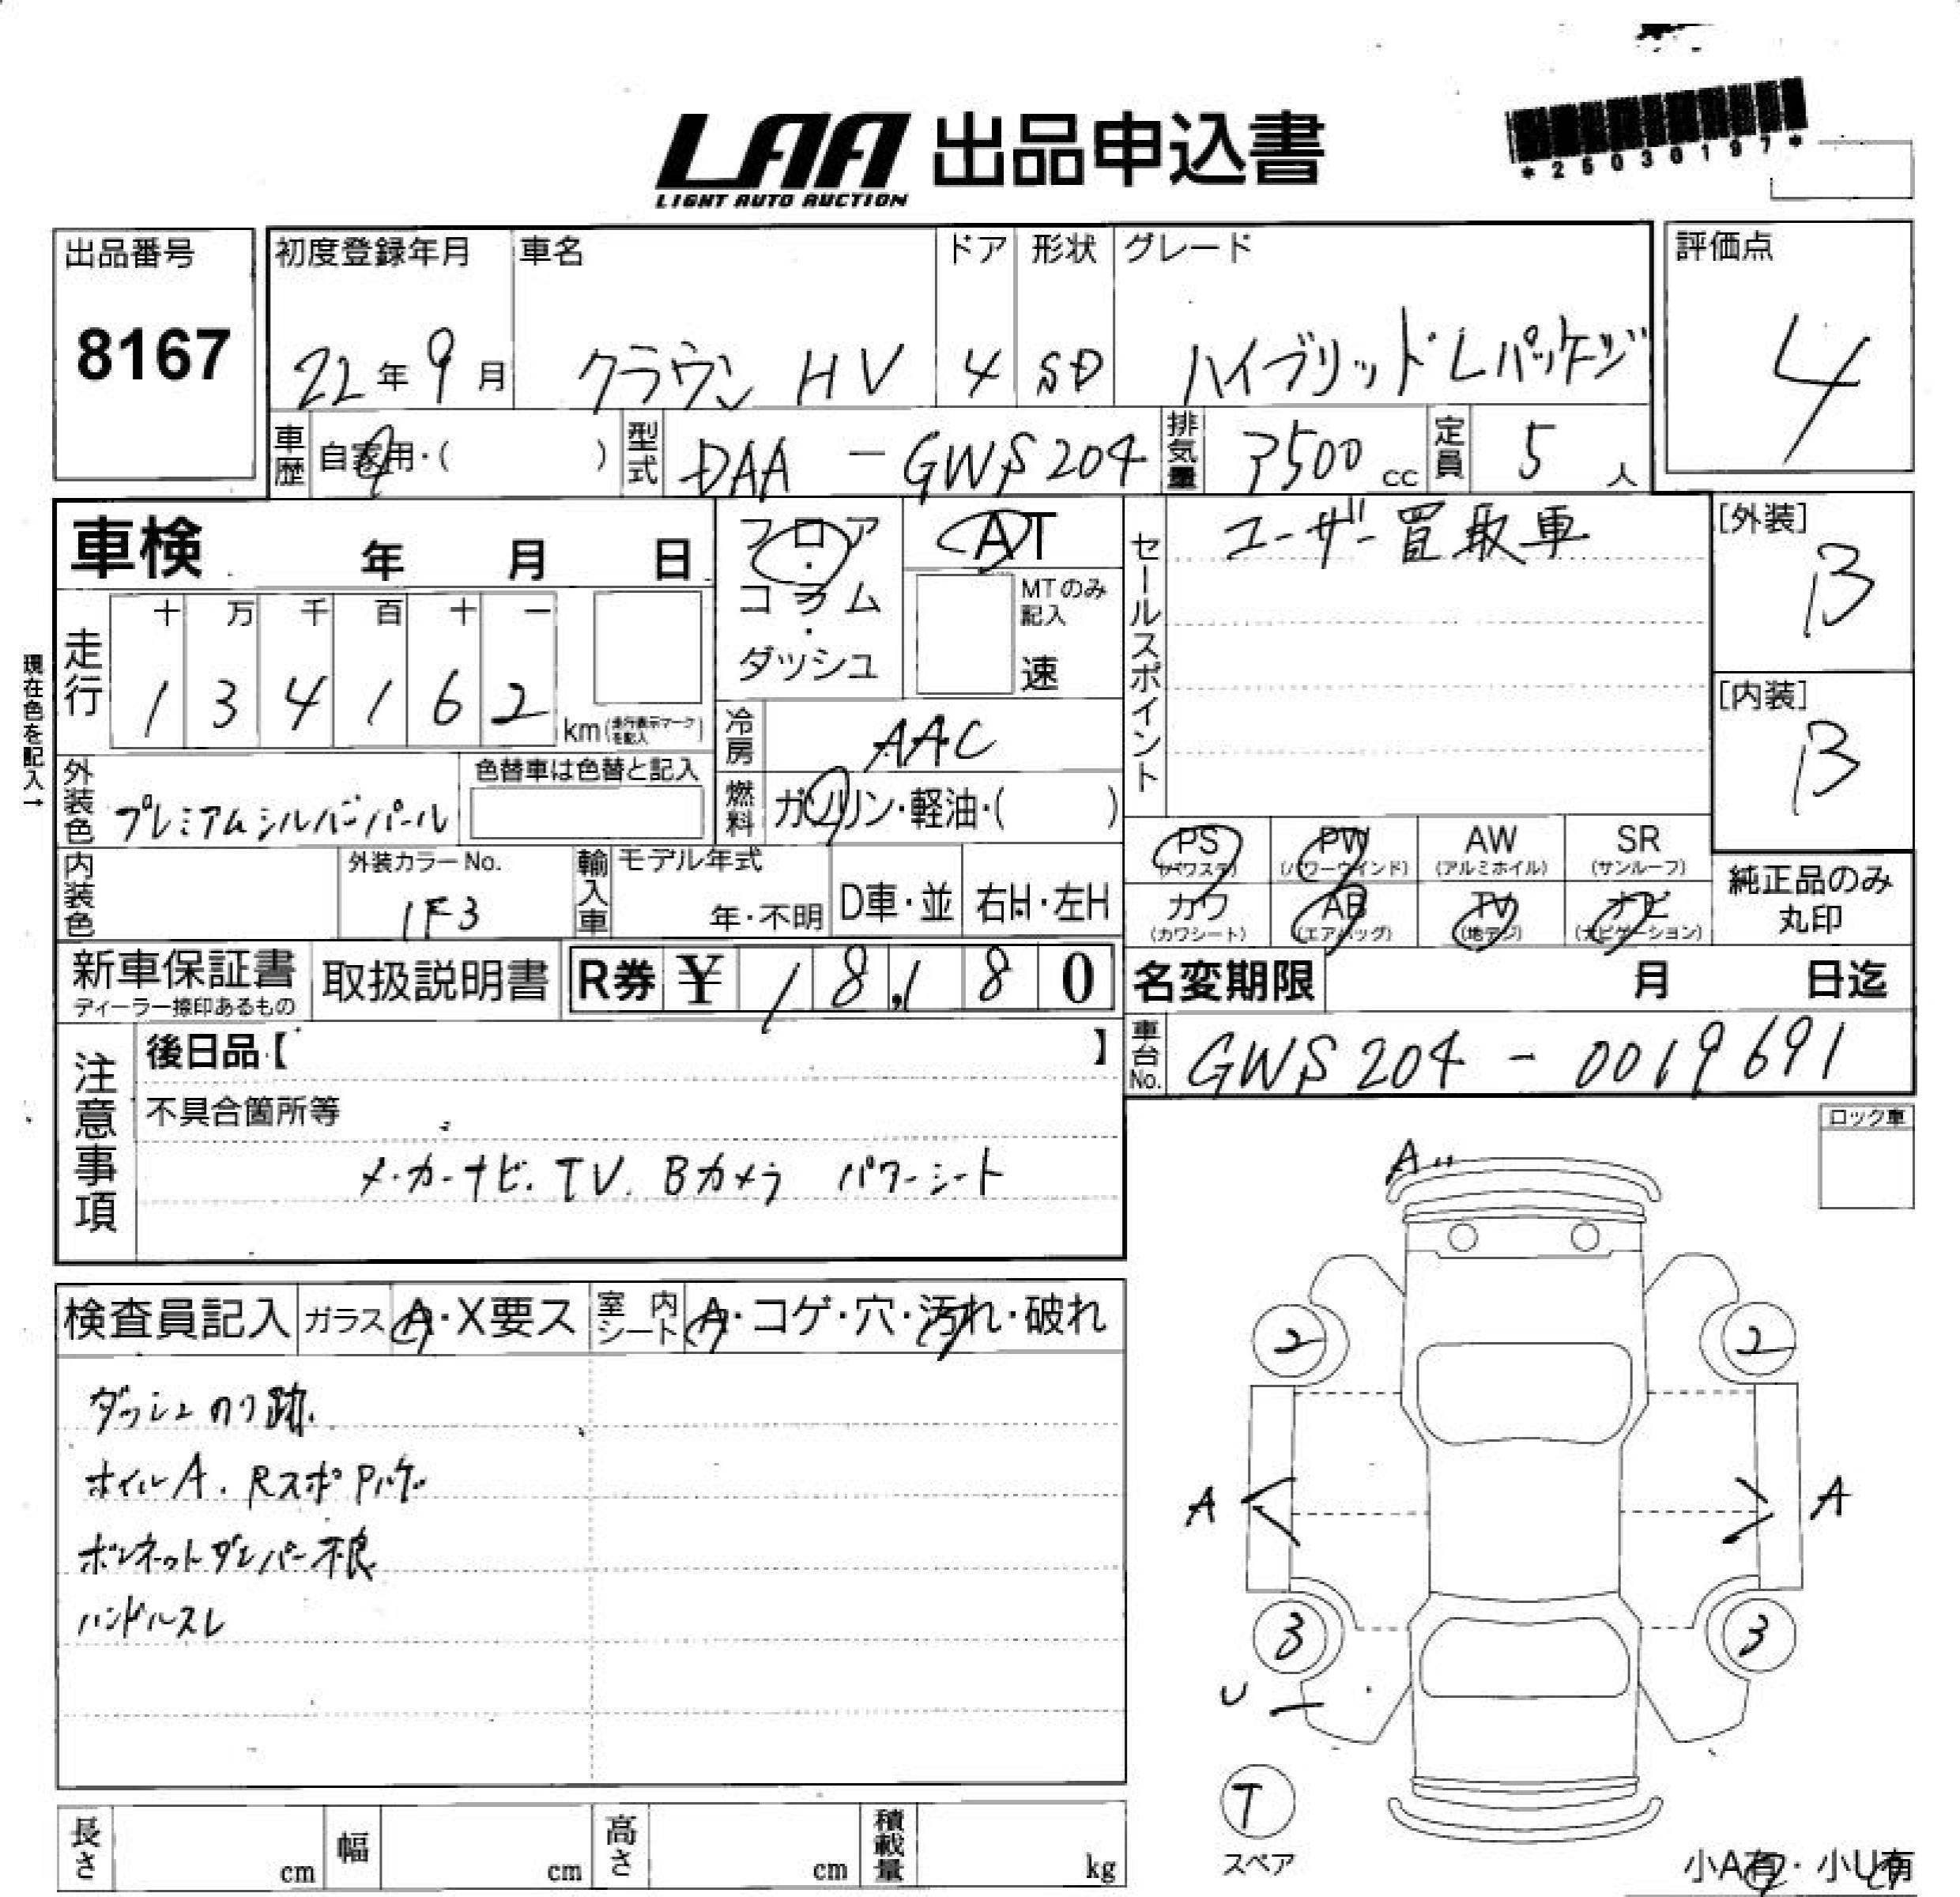 LAA 出品申込書
LIGHT AUTO AUCTION
*25030197*
出品番号
8167
初度登録年月
22年9月
車名
クラウン HV
ドア
4
形状
SD
グレード
ハイブリッド Lパッケージ
評価点
4
車歴
自家用・( )
型式
DAA - GWS204
排気量
3500cc
定員
5人
車検 年 月 日
フロア・コラム・ダッシュ
AT
MTのみ記入
速
セールスポイント
ユーザー買取車
[外装]
B
[内装]
B
走行
十 万 千 百 十 一
1 3 4 1 6 2
km(走行表示マークを記入)
現在色を記入→
冷房
AAC
燃料
ガソリン・軽油・( )
外装色
プレミアムシルバーパール
色替車は色替と記入
内装色
外装カラーNo.
1F3
輸入車
モデル年式
年・不明
D車・並
右H・左H
PS
(パワステ)
PW
(パワーウインド)
AW
(アルミホイル)
SR
(サンルーフ)
カワ
(カワシート)
AB
(エアバッグ)
TV
(地デジ)
ナビ
(ナビゲーション)
純正品のみ
丸印
新車保証書
ディーラー捺印あるもの
取扱説明書
R券 ¥ 18,180
名変期限 月 日迄
車台No.
GWS204 - 0019691
注意事項
後日品【 】
不具合箇所等
メーカーナビ. TV. Bカメラ パワーシート
ロック車
検査員記入
ガラス A・X要ス
室内シート A・コゲ・穴・汚れ・破れ
ダッシュのり跡.
ホイルA. Rスポ Pハゲ
ボンネットダンパー不良
ハンドルスレ
A
2 2
A A
3 3
U
T
スペア
小A有・小U有
長さ cm
幅 cm
高さ cm
積載量 kg